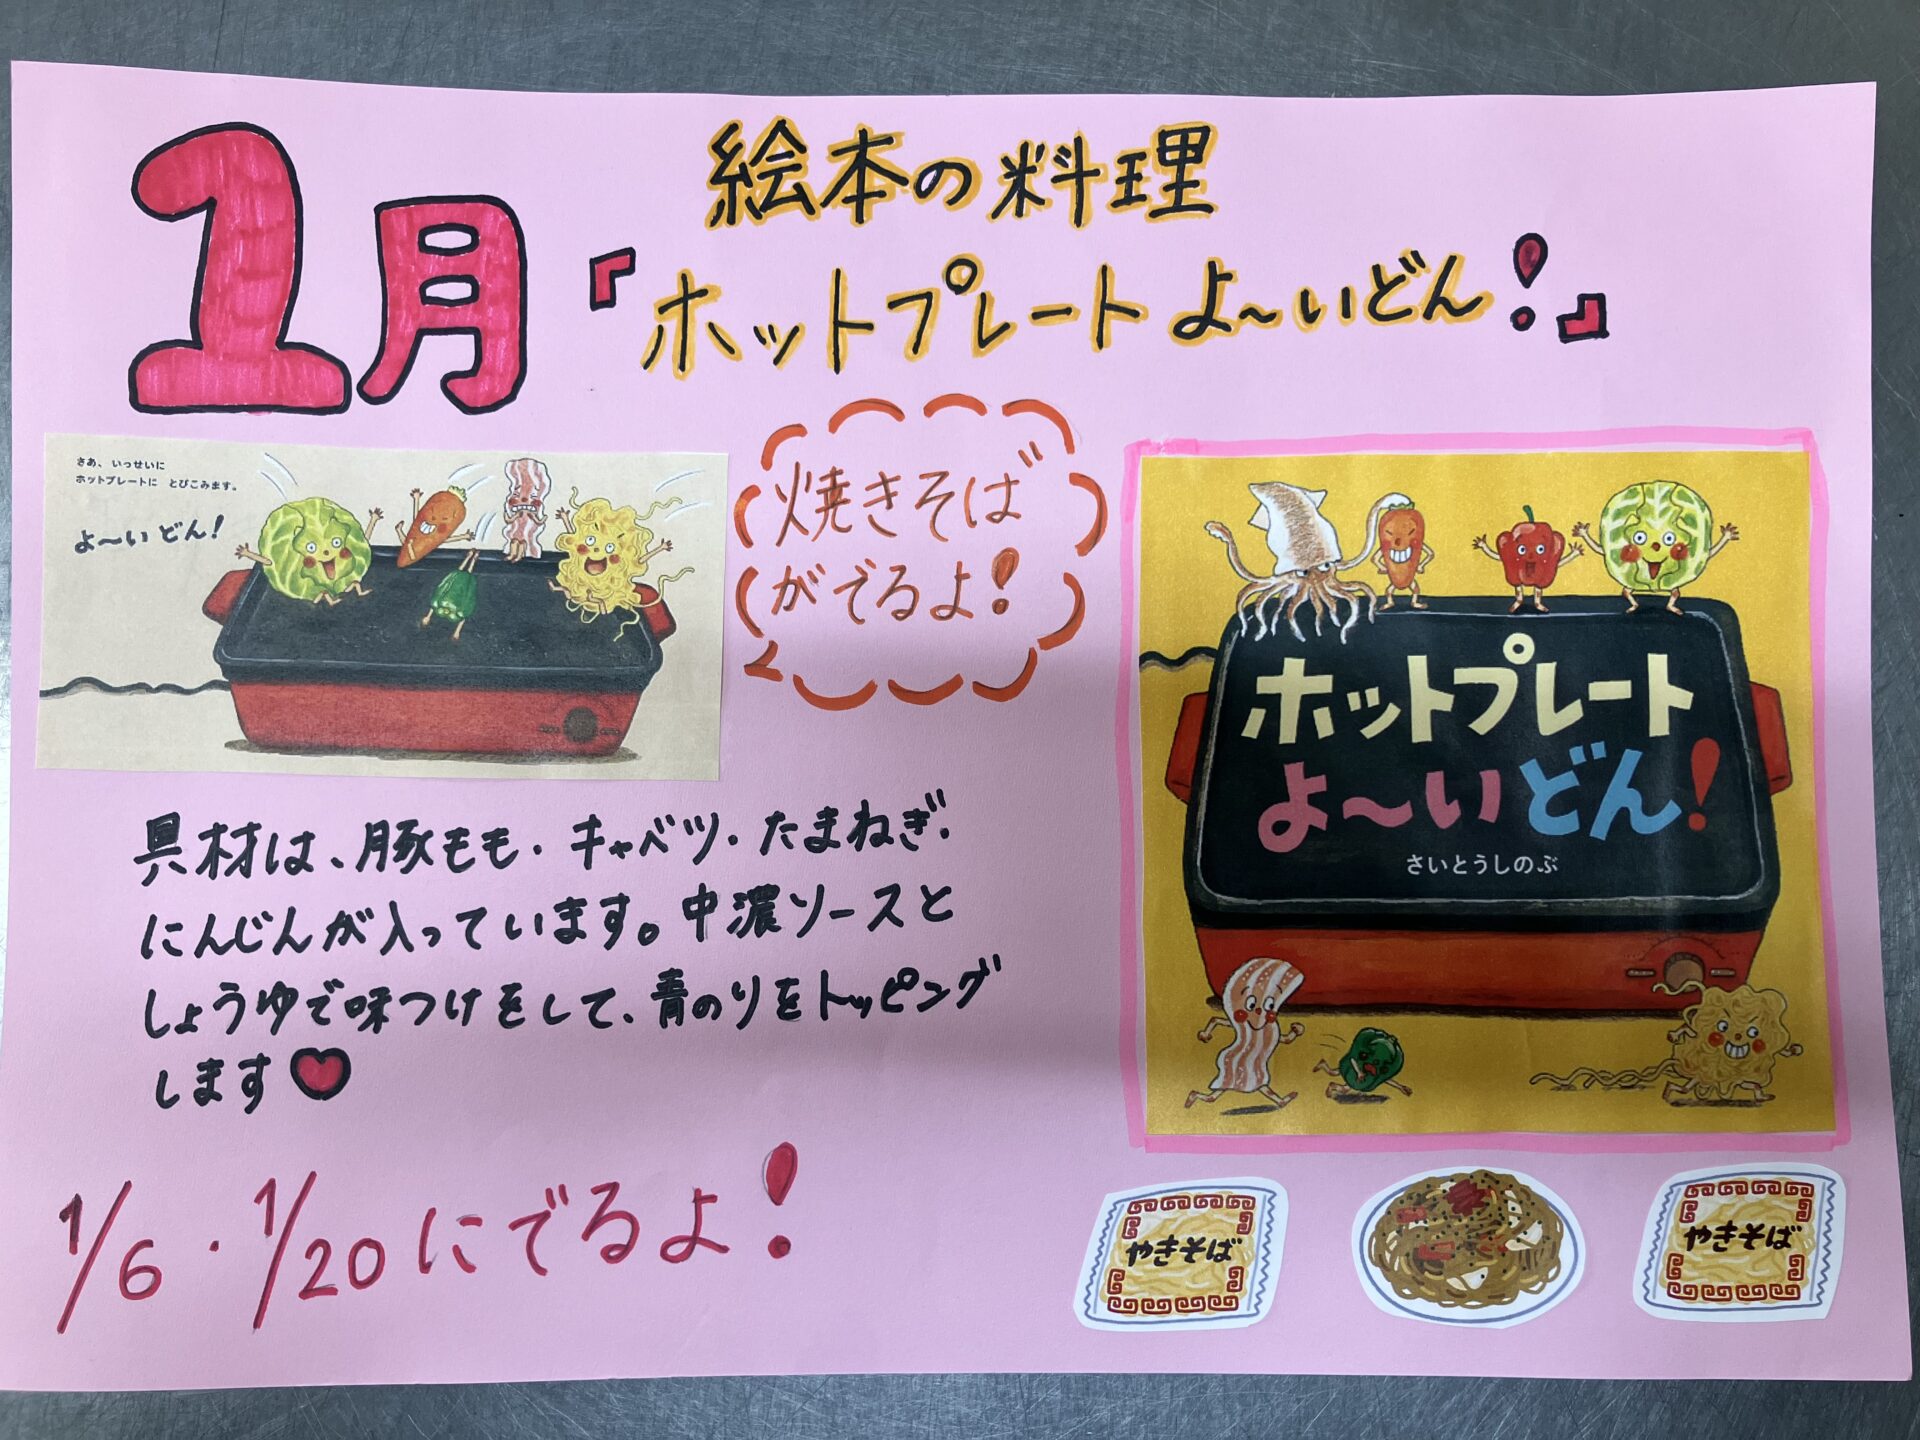 1月
絵本の料理
『ホットプレートよ〜いどん!』
さあ、いっせいに
ホットプレートに とびこみます。
よ〜いどん!
焼きそば
がでるよ!
ホットプレート
よ〜いどん!
さいとうしのぶ
具材は、豚もも・キャベツ・たまねぎ・
にんじんが入っています。中濃ソースと
しょうゆで味つけをして、青のりをトッピング
します
1/6・1/20にでるよ!
やきそば
やきそば